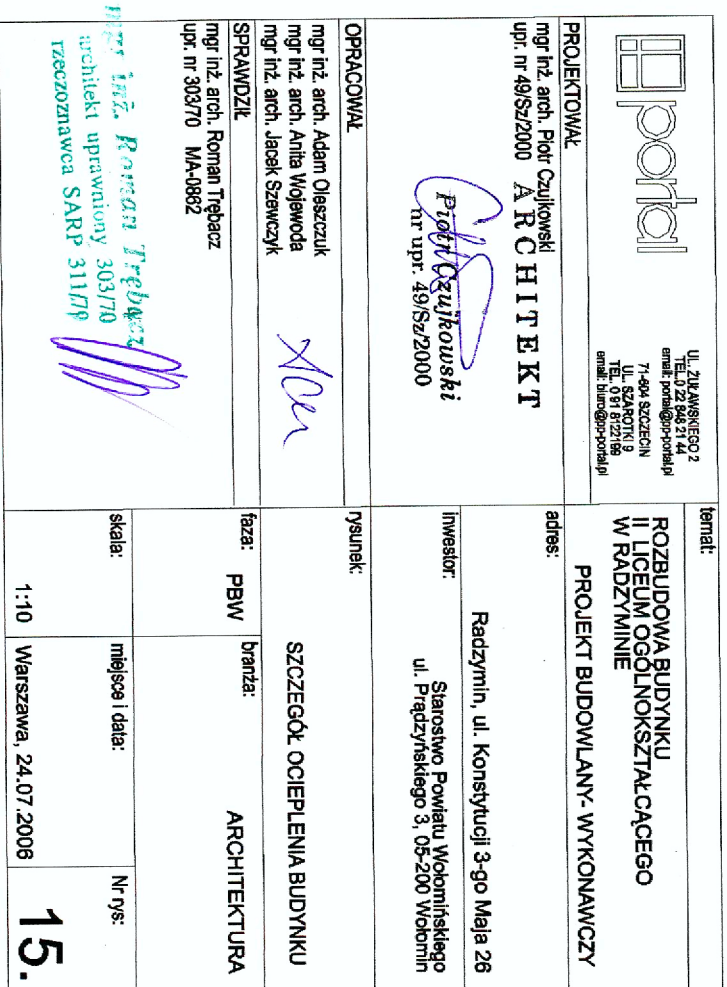 portal
UL. ŻUŁAWSKIEGO 2
TEL.0 22 848 21 44
email: portal@pp-portal.pl
71-604 SZCZECIN
UL. SZAROTKI 9
TEL. 0 91 8122199
email: biuro@pp-portal.pl
PROJEKTOWAŁ
mgr inż. arch. Piotr Czujkowski
upr. nr 49/Sz/2000
ARCHITEKT
Piotr Czujkowski
nr upr. 49/Sz/2000
OPRACOWAŁ
mgr inż. arch. Adam Oleszczuk
mgr inż. arch. Anita Wojewoda
mgr inż. arch. Jacek Szewczyk
SPRAWDZIŁ
mgr inż. arch. Roman Trębacz
upr. nr 303/70 MA-0862
mgr inż. Roman Trębacz
architekt uprawniony 303/70
rzeczoznawca SARP 311/79
temat:
ROZBUDOWA BUDYNKU
II LICEUM OGÓLNOKSZTAŁCĄCEGO
W RADZYMINIE
PROJEKT BUDOWLANY- WYKONAWCZY
adres:
Radzymin, ul. Konstytucji 3-go Maja 26
inwestor:
Starostwo Powiatu Wołomińskiego
ul. Prądzyńskiego 3, 05-200 Wołomin
rysunek:
SZCZEGÓŁ OCIEPLENIA BUDYNKU
faza:
PBW
branża:
ARCHITEKTURA
skala:
1:10
miejsce i data:
Warszawa, 24.07.2006
Nr rys:
15.